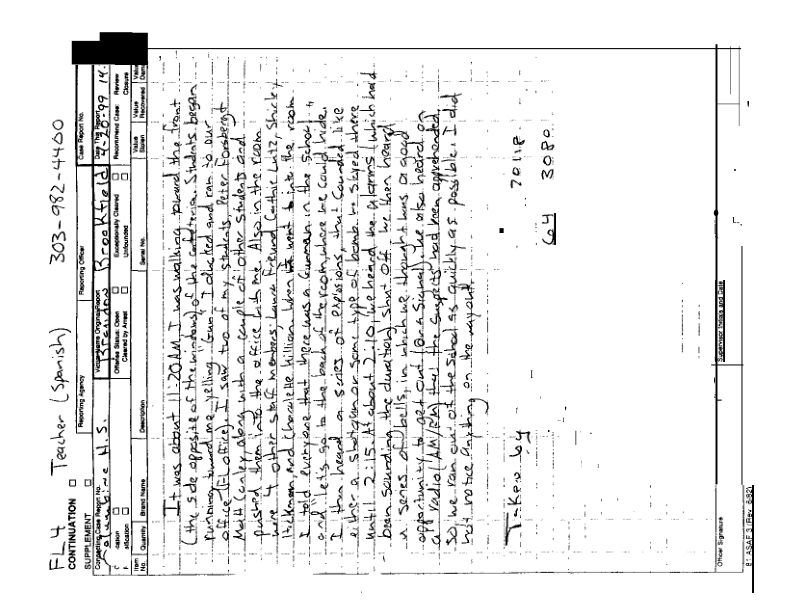 FL4 Teacher (Spanish) 303-982-4400
CONTINUATION
SUPPLEMENT
Reporting Agency Reporting Officer Case Report No.
Connecting Case Report No. Victim's Name Original Report Date This Report
Columbine H.S. Brendan Brookfield 4-20-99
Offense Status: Open Exceptionally Cleared Recommend Case: Review
Cleared by Arrest Unfounded Closure
Item No. Quantity Brand Name Description Serial No. Value Stolen Value Recovered
It was about 11:20 AM I was walking toward the front
(the side opposite of the windows) of the cafeteria. Students began
running toward me yelling "Gun". I ducked and ran to our
office (FL office). I saw two of my students, Peter Forsberg +
Matt Conley along with a couple of other students and
pushed them into the office with me. Also in the room
were 4 other staff members; Lance Freund, Cathie Lutz, Shick,
Hickman, and Charlette Hillion. When we went into the room
I told everyone that there was a Gunman in the school,
and let's go to the back of the room, where we could hide.
I then heard a series of explosions, that sounded like
either a shotgun or some type of bomb. We stayed there
until 2:15. At about 2:10 we heard the alarms (which had
been sounding the duration) shut off. We then heard
a series of bells, in which we thought was a good
opportunity to get out (or a signal). We also heard on
a radio (AM/FM) that the suspects had been apprehended
so, we ran out of the school as quickly as possible. I did
not notice anything on the way out.
64 3080
Officer Signature Supervisor Initials and Date